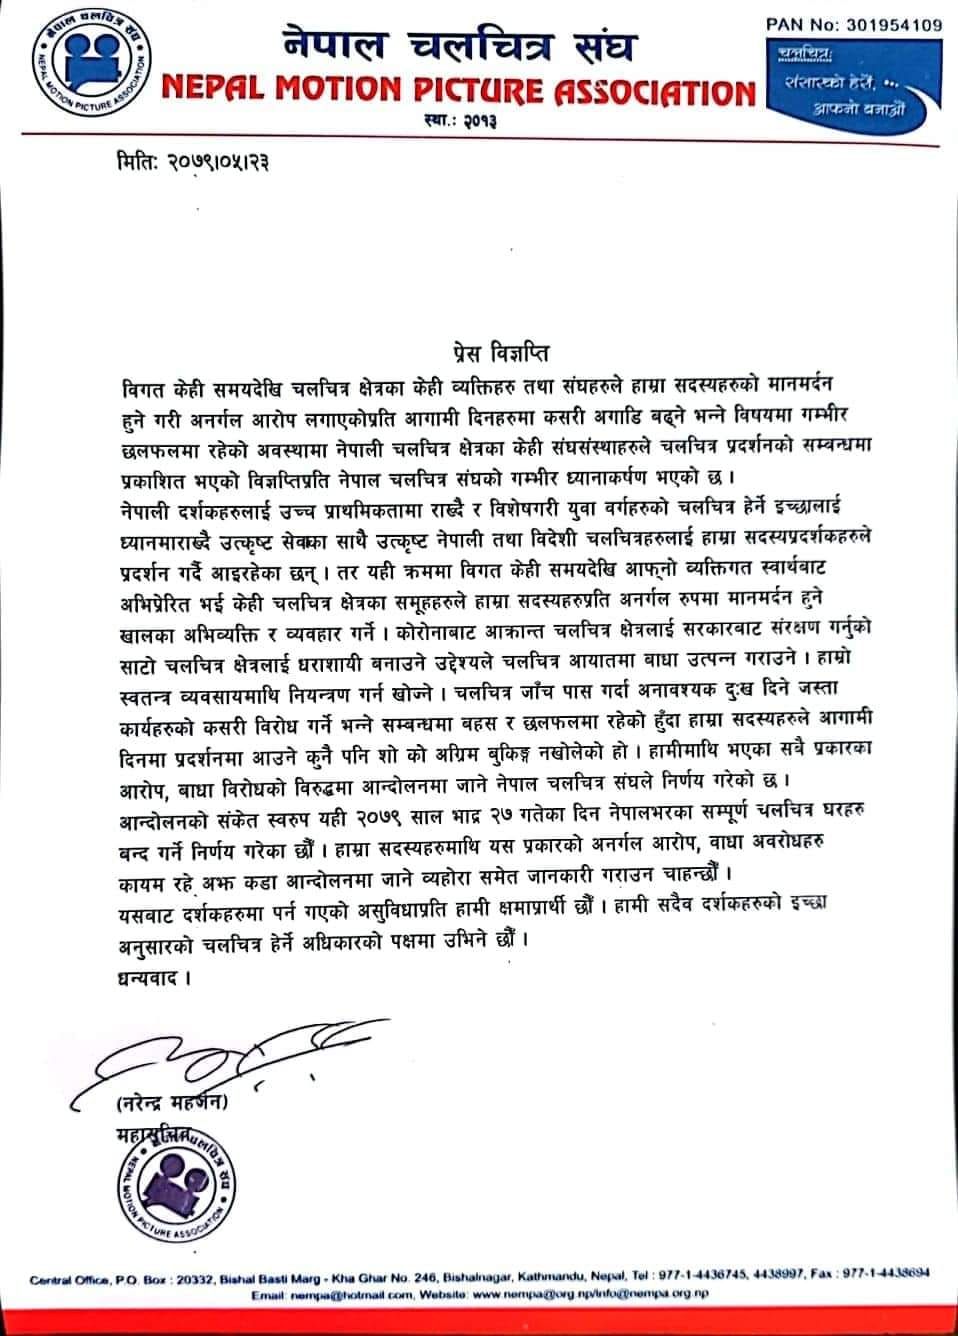 PAN No: 301954109
नेपाल चलचित्र संघ
NEPAL MOTION PICTURE ASSOCIATION
स्था.: २०१३
नेपाल चलचित्र संघ
NEPAL MOTION PICTURE ASSOCIATION
चलचित्रः
संसारको हेरौं, ...
आफ्नो बनाऔं
मितिः २०७९।०५।२३
प्रेस विज्ञप्ति
विगत केही समयदेखि चलचित्र क्षेत्रका केही व्यक्तिहरु तथा संघहरुले हाम्रा सदस्यहरुको मानमर्दन
हुने गरी अनर्गल आरोप लगाएकोप्रति आगामी दिनहरुमा कसरी अगाडि बढ्ने भन्ने विषयमा गम्भीर
छलफलमा रहेको अवस्थामा नेपाली चलचित्र क्षेत्रका केही संघसंस्थाहरुले चलचित्र प्रदर्शनको सम्बन्धमा
प्रकाशित भएको विज्ञप्तिप्रति नेपाल चलचित्र संघको गम्भीर ध्यानाकर्षण भएको छ ।
नेपाली दर्शकहरुलाई उच्च प्राथमिकतामा राख्दै र विशेषगरी युवा वर्गहरुको चलचित्र हेर्ने इच्छालाई
ध्यानमाराख्दै उत्कृष्ट सेवाका साथै उत्कृष्ट नेपाली तथा विदेशी चलचित्रहरुलाई हाम्रा सदस्यप्रदर्शकहरुले
प्रदर्शन गर्दै आइरहेका छन् । तर यही क्रममा विगत केही समयदेखि आफ्नो व्यक्तिगत स्वार्थबाट
अभिप्रेरित भई केही चलचित्र क्षेत्रका समूहहरुले हाम्रा सदस्यहरुप्रति अनर्गल रुपमा मानमर्दन हुने
खालका अभिव्यक्ति र व्यवहार गर्ने । कोरोनाबाट आक्रान्त चलचित्र क्षेत्रलाई सरकारबाट संरक्षण गर्नुको
साटो चलचित्र क्षेत्रलाई धराशायी बनाउने उद्देश्यले चलचित्र आयातमा बाधा उत्पन्न गराउने । हाम्रो
स्वतन्त्र व्यवसायमाथि नियन्त्रण गर्न खोज्ने । चलचित्र जाँच पास गर्दा अनावश्यक दुःख दिने जस्ता
कार्यहरुको कसरी विरोध गर्ने भन्ने सम्बन्धमा बहस र छलफलमा रहेको हुँदा हाम्रा सदस्यहरुले आगामी
दिनमा प्रदर्शनमा आउने कुनै पनि शो को अग्रिम बुकिङ्ग नखोलेको हो । हामीमाथि भएका सबै प्रकारका
आरोप, बाधा विरोधको विरुद्धमा आन्दोलनमा जाने नेपाल चलचित्र संघले निर्णय गरेको छ ।
आन्दोलनको संकेत स्वरुप यही २०७९ साल भाद्र २७ गतेका दिन नेपालभरका सम्पूर्ण चलचित्र घरहरु
बन्द गर्ने निर्णय गरेका छौँ । हाम्रा सदस्यहरुमाथि यस प्रकारको अनर्गल आरोप, वाधा अवरोधहरु
कायम रहे अझ कडा आन्दोलनमा जाने व्यहोरा समेत जानकारी गराउन चाहन्छौँ ।
यसबाट दर्शकहरुमा पर्न गएको असुविधाप्रति हामी क्षमाप्रार्थी छौँ । हामी सदैव दर्शकहरुको इच्छा
अनुसारको चलचित्र हेर्ने अधिकारको पक्षमा उभिने छौँ ।
धन्यवाद ।
(नरेन्द्र महर्जन)
महासचिव
नेपाल चलचित्र संघ
NEPAL MOTION PICTURE ASSOCIATION
Central Office, P.O. Box : 20332, Bishal Basti Marg - Kha Ghar No. 246, Bishalnagar, Kathmandu, Nepal, Tel : 977-1-4436745, 4438997, Fax : 977-1-4438694
Email: nempa@hotmail.com, Website: www.nempa@org.np/info@nempa.org.np